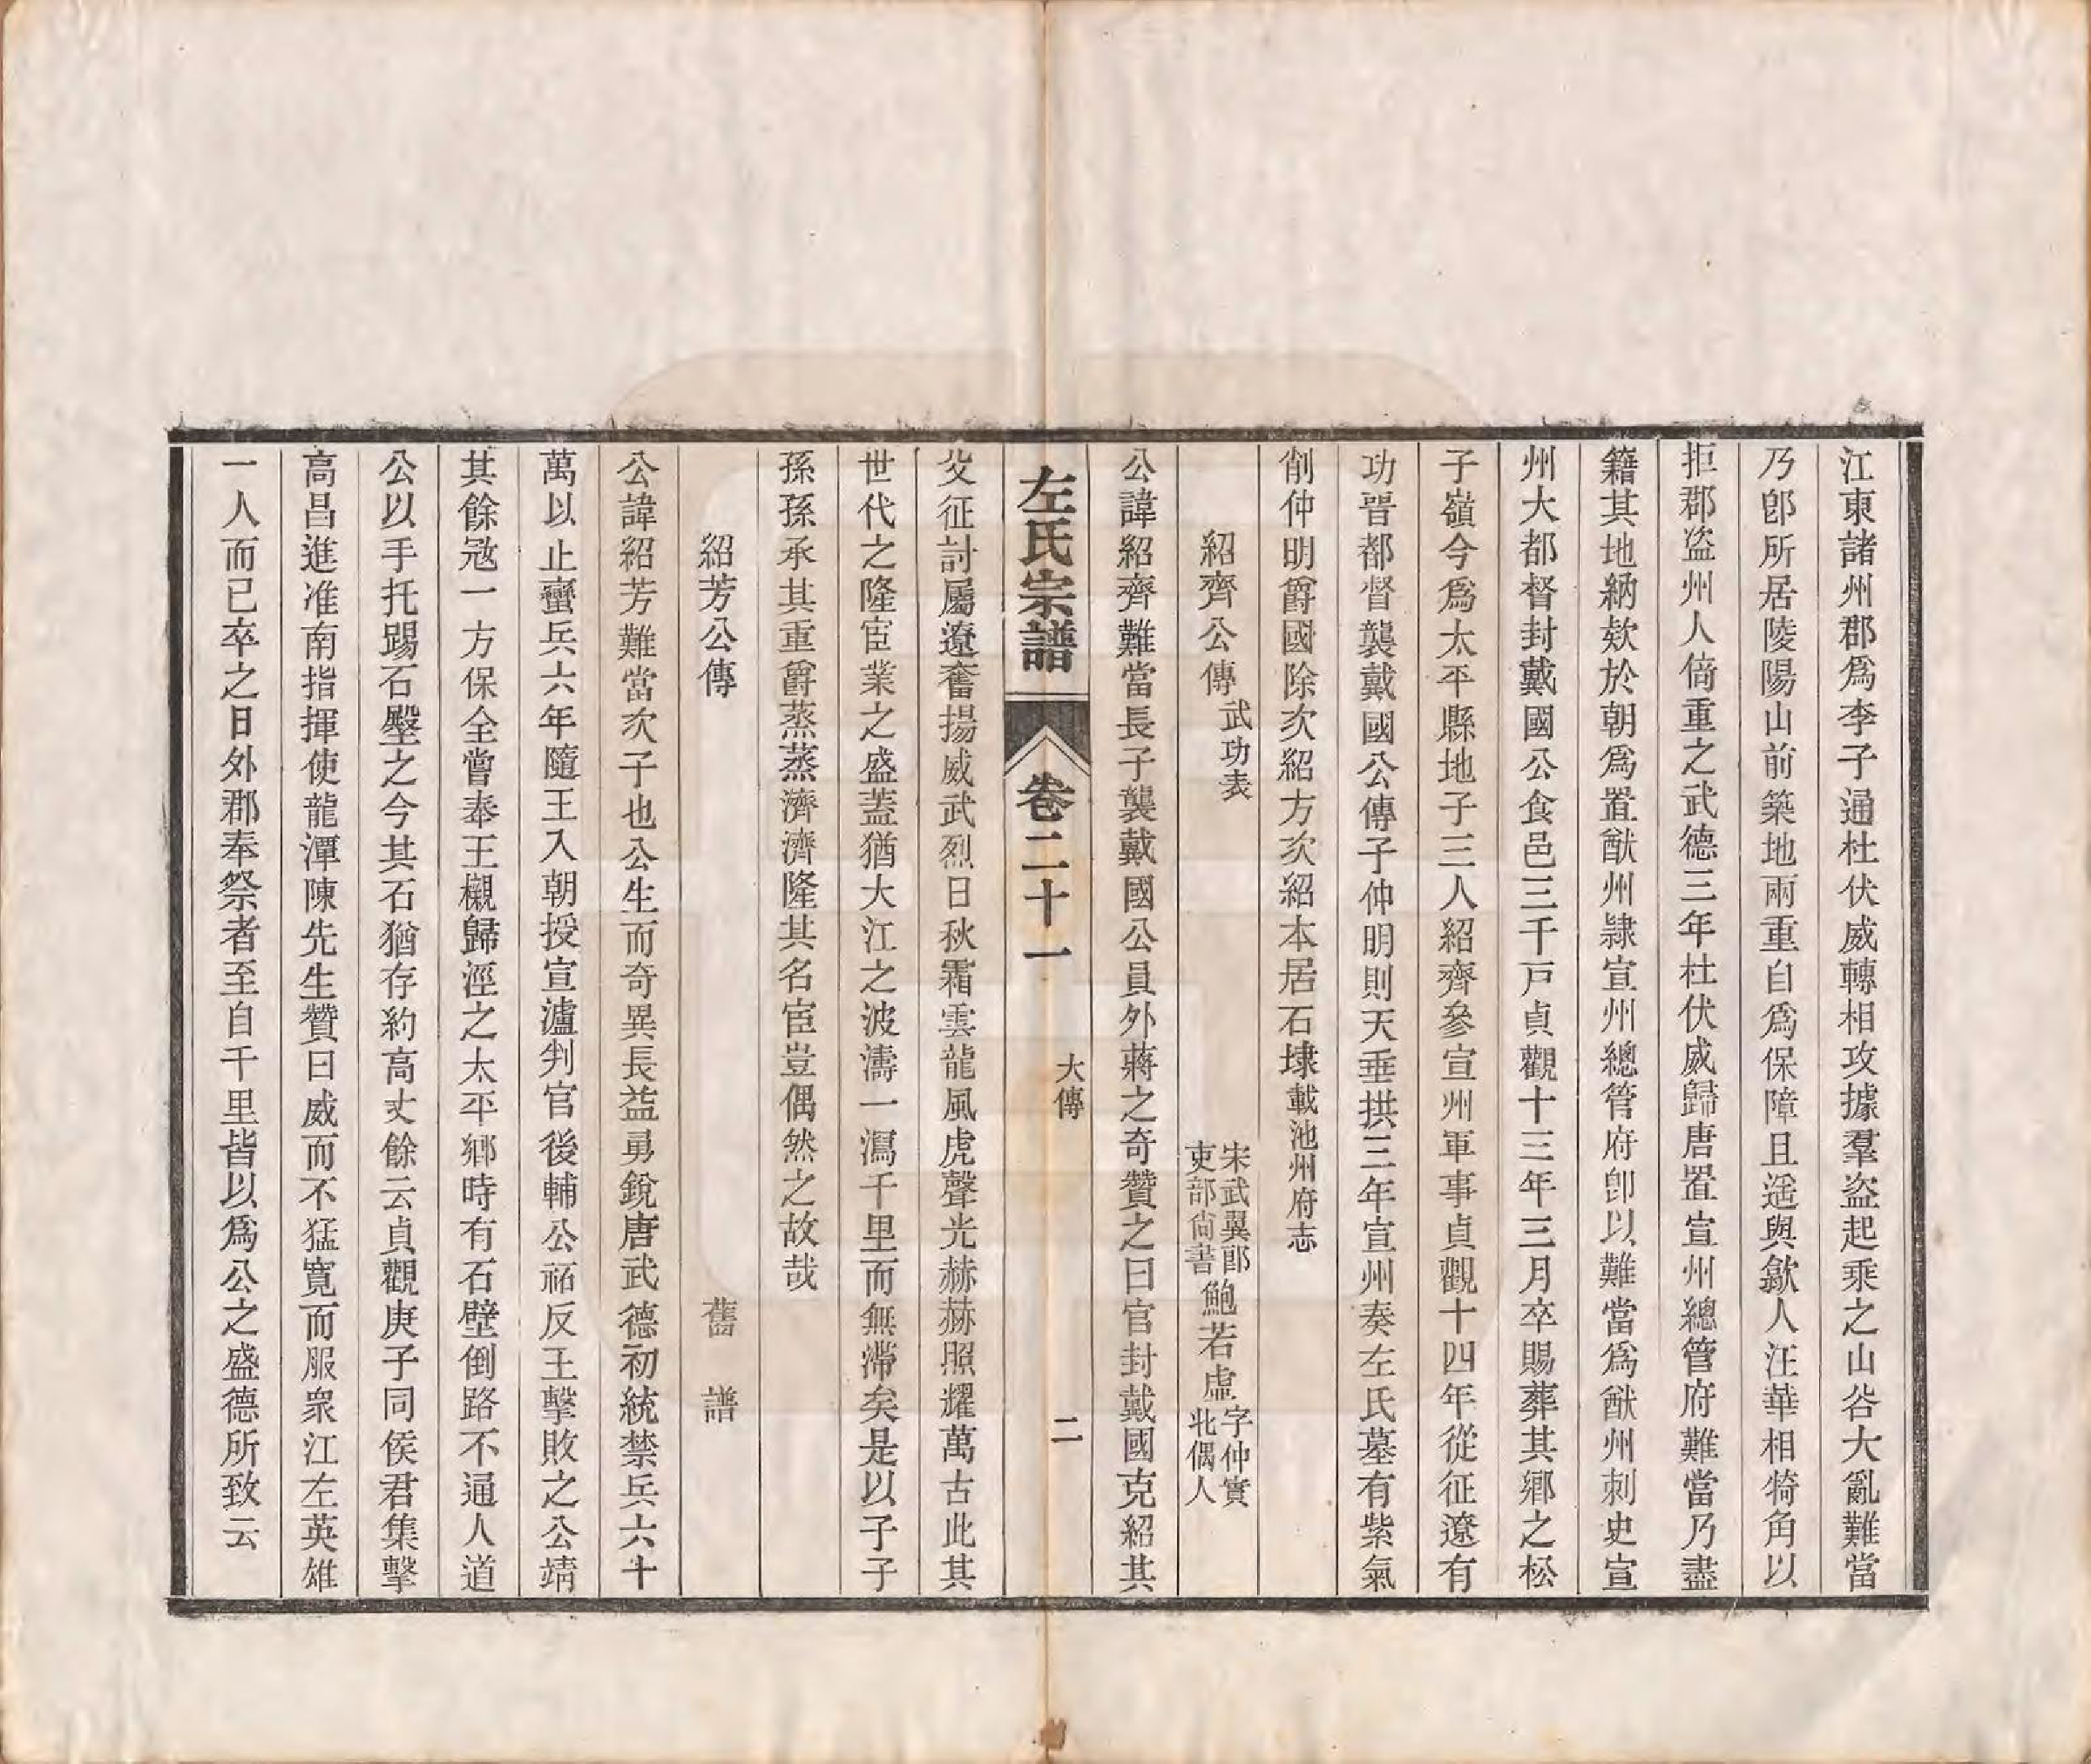 江東諸州郡爲李子通杜伏威轉相攻據羣盜起乘之山谷大亂難當
乃卽所居陵陽山前築地兩重自爲保障且遥與歙人汪華相犄角以
拒郡盜州人倚重之武德三年杜伏威歸唐置宣州總管府難當乃盡
籍其地納欵於朝爲置猷州隷宣州總管府卽以難當爲猷州刺史宣
州大都督封戴國公食邑三千戸貞觀十三年三月卒賜葬其鄕之松
子嶺今爲太平縣地子三人紹齊參宣州軍事貞觀十四年從征遼有
功晋都督襲戴國公傳子仲明則天垂拱三年宣州奏左氏墓有紫氣
削仲明爵國除次紹方次紹本居石埭載池州府志
紹齊公傳 武功表 宋武翼郎吏部尙書鮑若虛字仲實北偶人
公諱紹齊難當長子襲戴國公員外蔣之奇贊之曰官封戴國克紹其
左氏宗譜 卷二十一 大傳 二
父征討屬遼奮揚威武烈日秋霜雲龍風虎聲光赫赫照耀萬古此其
世代之隆宦業之盛蓋猶大江之波濤一瀉千里而無滯矣是以子子
孫孫承其重爵蒸蒸濟濟隆其名宦豈偶然之故哉
紹芳公傳 舊譜
公諱紹芳難當次子也公生而奇異長益勇銳唐武德初統禁兵六十
萬以止蠻兵六年隨王入朝授宣瀘判官後輔公祏反王擊敗之公靖
其餘宼一方保全嘗奉王櫬歸涇之太平鄕時有石壁倒路不通人道
公以手托踢石墼之今其石猶存約高丈餘云貞觀庚子同侯君集擊
高昌進准南指揮使龍潭陳先生贊曰威而不猛寬而服衆江左英雄
一人而已卒之日外郡奉祭者至自千里皆以爲公之盛德所致云